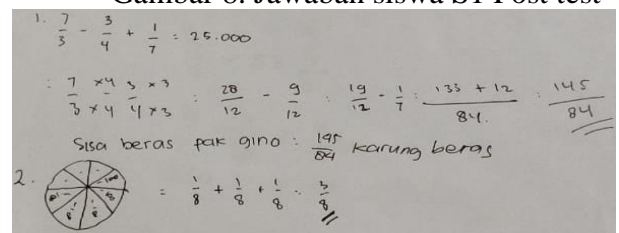 Gambar 6. Jawaban siswa S1 Post-test
1. 7/3 - 3/4 + 1/7 = 25.000
: 7 × 4 / 3 × 4 3 × 3 / 4 × 3 : 28/12 - 9/12 : 19/12 - 1/7 : 133 + 12 / 84. : 145/84
Sisa beras pak gino : 145/84 karung beras
2. = 1/8 + 1/8 + 1/8 = 3/8